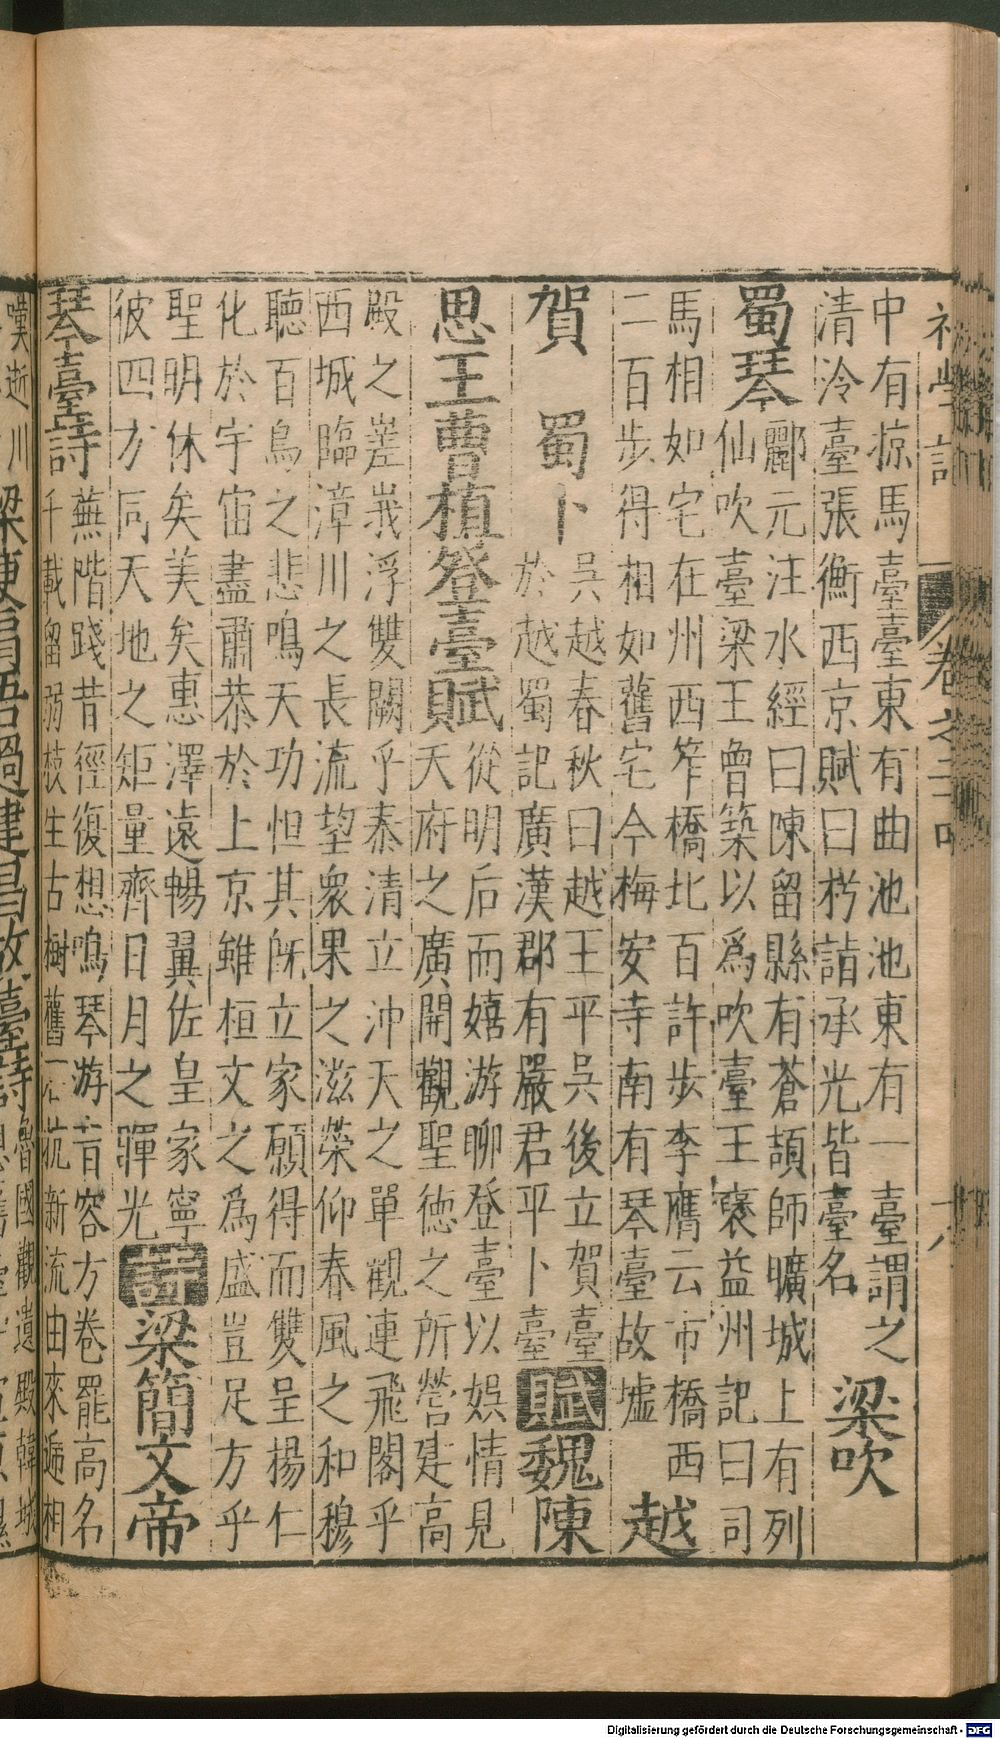 初學記 卷之二十
中有掠馬臺臺東有曲池池東有一臺謂之
清泠臺張衡西京賦曰枍詣承光皆臺名
梁吹
蜀琴
酈元注水經曰陳留縣有蒼頡師曠城上有列
仙吹臺梁王曾築以為吹臺王襃益州記曰司
馬相如宅在州西笮橋北百許步李膺云市橋西
二百步得相如舊宅今梅安寺南有琴臺故墟
越
賀 蜀卜
吳越春秋曰越王平吳後立賀臺
於越蜀記廣漢郡有嚴君平卜臺
賦 魏陳
思王曹植登臺賦
從明后而嬉游聊登臺以娛情見
天府之廣開觀聖德之所營建高
殿之嵳峩浮雙闕乎泰清立沖天之華觀連飛閣乎
西城臨漳川之長流望衆果之滋榮仰春風之和穆
聽百鳥之悲鳴天功怛其既立家願得而雙呈揚仁
化於宇宙盡肅恭於上京雖桓文之為盛豈足方乎
聖明休矣美矣惠澤遠暢翼佐皇家寧
彼四方同天地之矩量齊日月之暉光
詩 梁簡文帝
琴臺詩
蕪階踐昔徑復想鳴琴游音容方卷罷高名
千載留弱枝生古樹舊石杭新流由來遞相
嘆逝川 梁庾肩吾過建昌故臺詩
魯國觀遺殿韓城
Digitalisierung gefördert durch die Deutsche Forschungsgemeinschaft - DFG